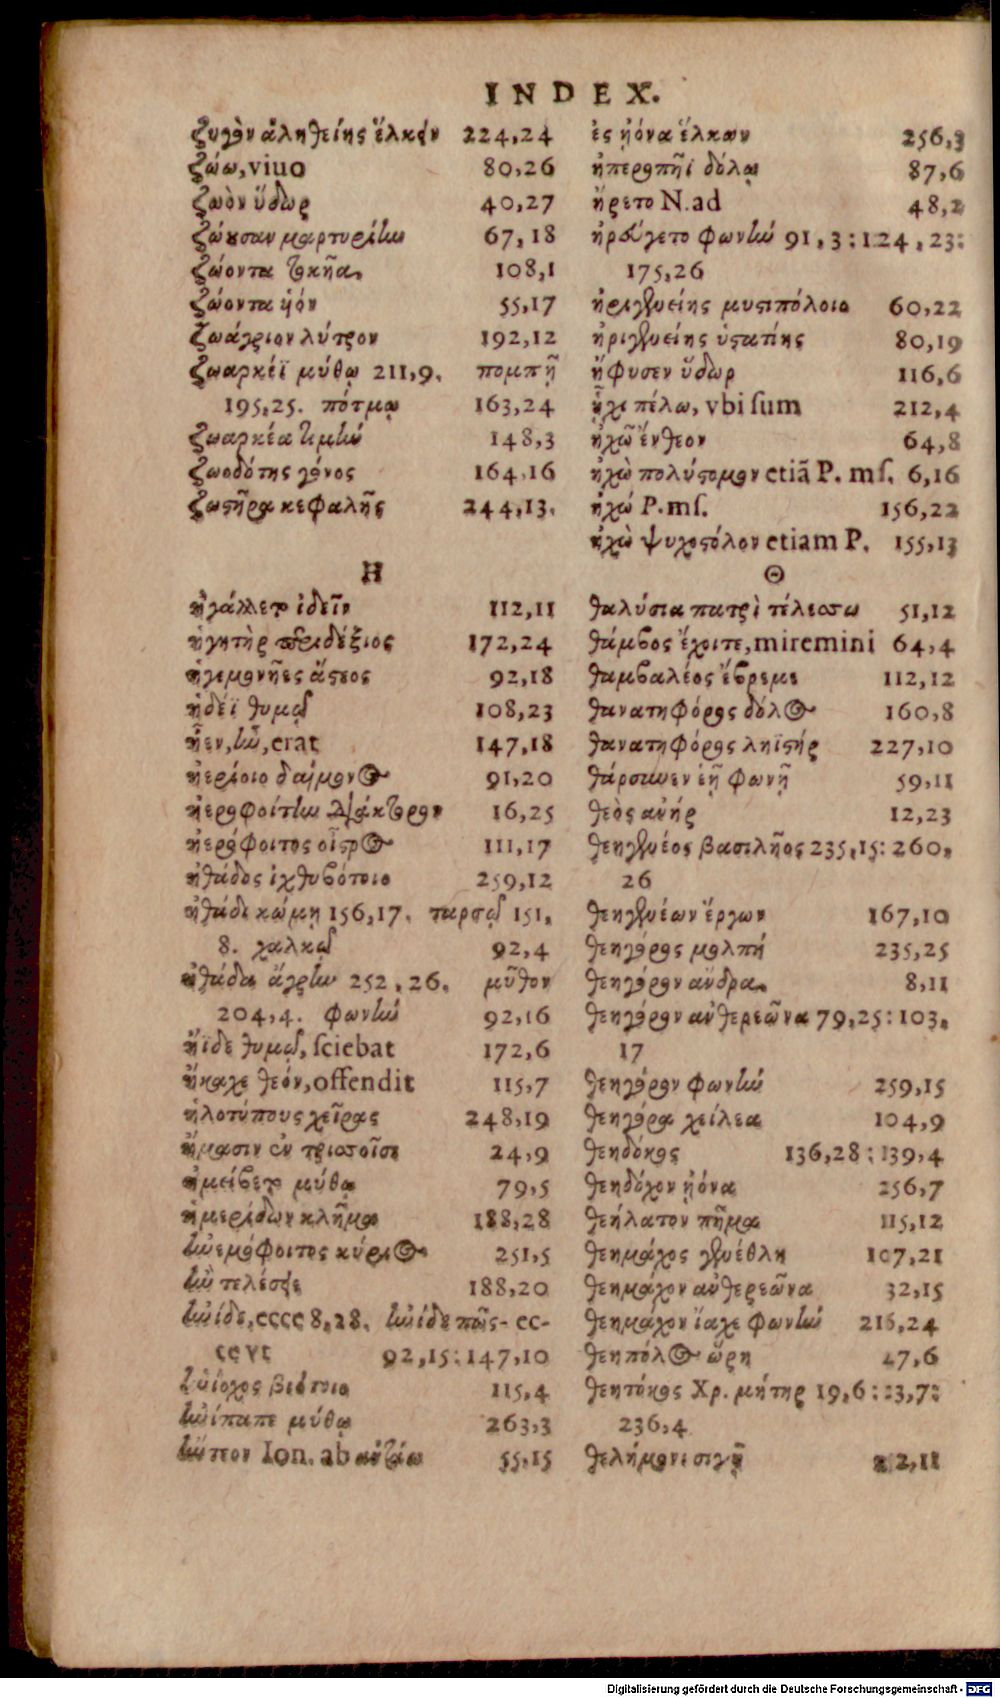 INDEX.
ζυγὸν ἀληθείης ἕλκων 224,24
ζώω, viuo 80,26
ζωὸν ὕδωρ 40,27
ζώουσαν μαρτυρίην 67,18
ζώοντα τοκῆα 108,1
ζώοντα ἡόν 55,17
ζωάγριον λύτρον 192,12
ζωαρκέϊ μύθῳ 211,9. πομπῇ
195,25. πότμῳ 163,24
ζωαρκέα τιμὴν 148,3
ζωοδότης γόνος 164,16
ζωστῆρα κεφαλῆς 244,13.
Η
ἠγάλλετο ἰδεῖν 112,11
ἡγητὴρ περιδέξιος 172,24
ἡγεμονῆες ἄστεος 92,18
ἡδέϊ θυμῷ 108,23
ἦεν, ἦν, erat 147,18
ἠερίοιο δαίμονος 91,20
ἠεροφοίτην διάκτορον 16,25
ἠερόφοιτος οἶστρος 111,17
ἠθάδος ἰχθυβότοιο 259,12
ἠθάδι κώμῃ 156,17. ταρσῷ 151,
8. χαλκῷ 92,4
ἠθάδα ἄγρην 252,26. μῦθον
204,4. φωνὴν 92,16
ἤϊδε θυμῷ, sciebat 172,6
ἤκαχε θεόν, offendit 115,7
ἡλοτύπους χεῖρας 248,19
ἤμασιν ἐν τρισσοῖσι 24,9
ἠμείβετο μύθῳ 79,5
ἡμερίδων κλῆμα 188,28
ἠνεμόφοιτος κύριος 251,5
ἢν τελέσῃς 188,20
ἠνίδε, ecce 8,28. ἠνίδε πῶς- ec-
ce vt 92,15: 147,10
ἡνίοχος βιότοιο 115,4
ἠνίπαπε μύθῳ 263,3
ἤντεον Ion. ab ἀντάω 55,15
ἐς ἠόνα ἕλκων 256,3
ἠπεροπῆϊ δόλῳ 87,6
ἤρετο N. ad 48,2
ἠρεύγετο φωνὴν 91,3: 124,23:
175,26
ἠριγενείης μυστιπόλοιο 60,22
ἠριγενείης ὑστατίης 80,19
ἤφυσεν ὕδωρ 116,6
ἧχι πέλω, vbi sum 212,4
ἠχῶ ἔνθεον 64,8
ἠχὼ πολύστομον etiã P. ms. 6,16
ἠχώ P. ms. 156,22
ἠχὼ ψυχοστόλον etiam P. 155,13
Θ
θαλύσια πατρὶ τέλεσσω 51,12
θάμβος ἔχοιτε, miremini 64,4
θαμβαλέος ἔβρεμε 112,12
θανατηφόρος δόλος 160,8
θανατηφόρος ληϊστήρ 227,10
θάρσυνεν ἑῇ φωνῇ 59,11
θεὸς ἀνήρ 12,23
θεηγενέος βασιλῆος 235,15: 260,
26
θεηγενέων ἔργων 167,10
θεηγόρος μολπή 235,25
θεηγόρον ἄνδρα 8,11
θεηγόρον ἀνθερεῶνα 79,25: 103,
17
θεηγόρον φωνὴν 259,15
θεηγόρα χείλεα 104,9
θεηδόκος 136,28: 139,4
θεηδόχον ἠόνα 256,7
θεήλατον πῆμα 115,12
θεημάχος γενέθλη 107,21
θεημάχον ἀνθερεῶνα 32,15
θεημάχον ἴαχε φωνὴν 216,24
θεηπόλος ὥρη 47,6
θεητόκος Χρ. μήτηρ 19,6: 23,7:
236,4
θελήμονι σιγῇ 212,11
Digitalisierung gefördert durch die Deutsche Forschungsgemeinschaft - DFG